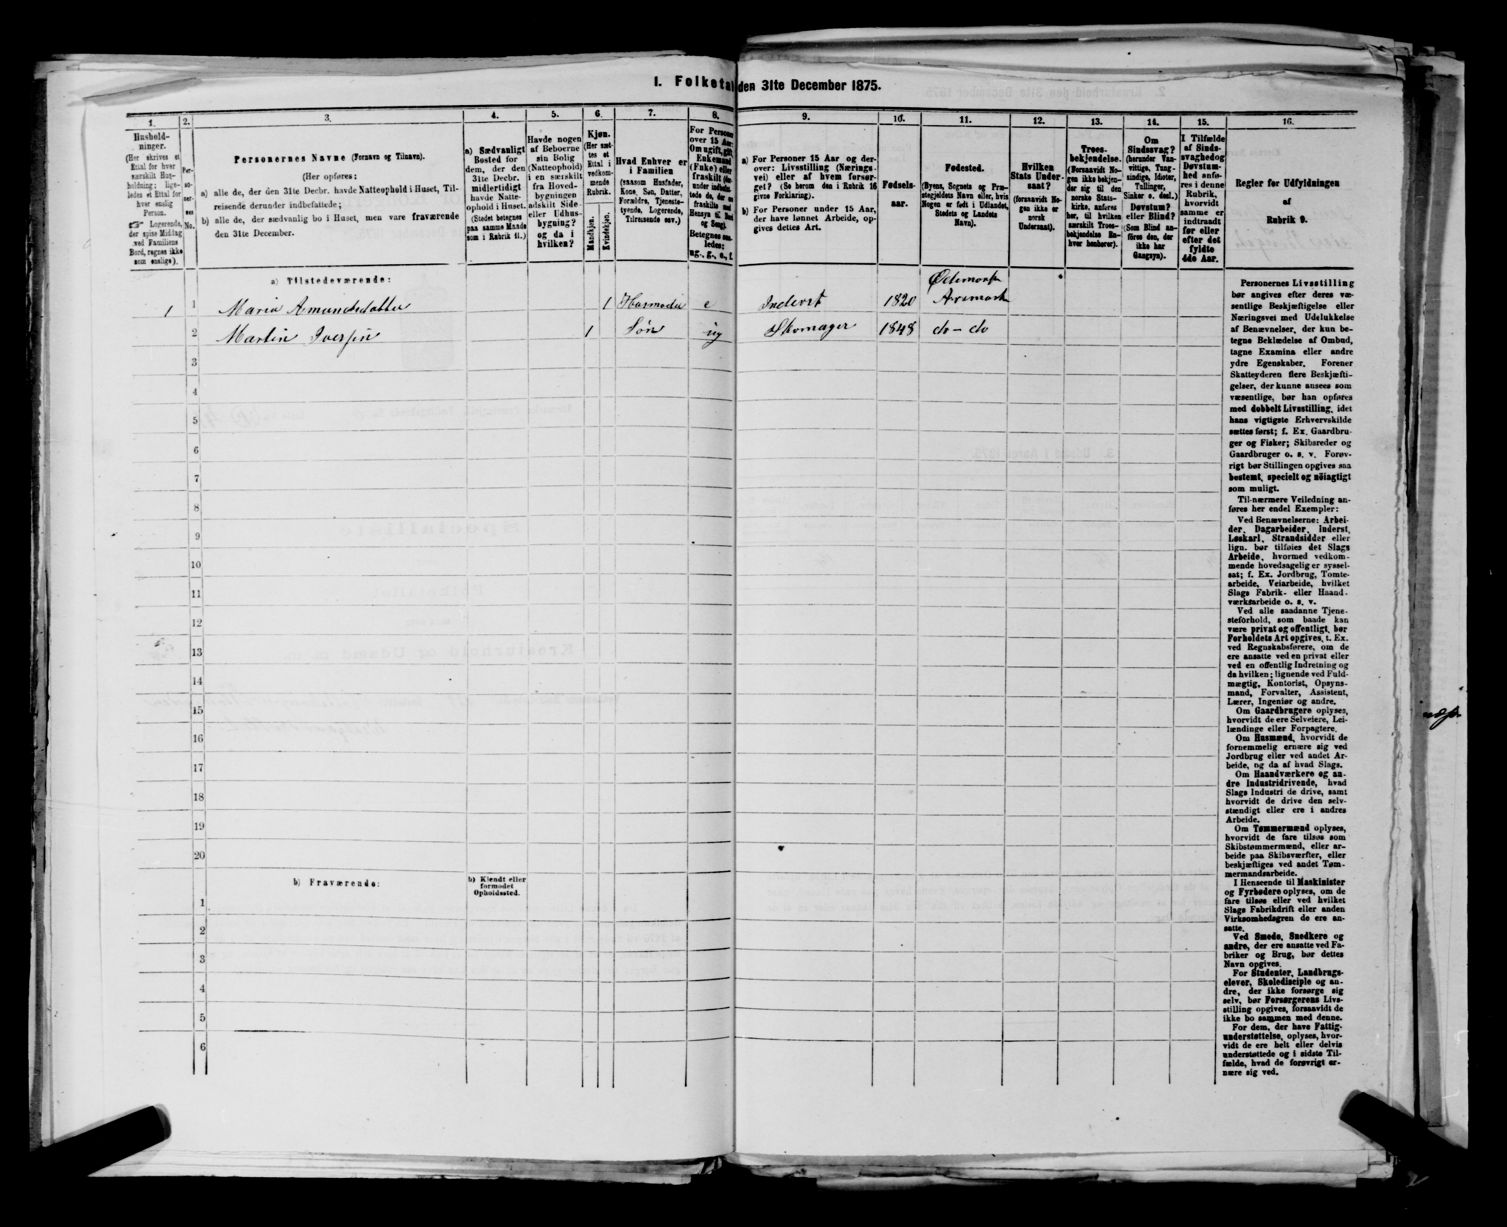 I. Folketal den 31te December 1875.
1.
Hushold-
ninger.
(Her skrives et
Ettal for hver
særskilt Hus-
holdning; lige-
ledes et Ettal for
hver enslig
Person.
☞ Logerende,
der spise Middag
ved Familiens
Bord, regnes ikke
som enslige).
2.
Per-
so-
ner-
nes
No.
3.
Personernes Navne (Fornavn og Tilnavn).
(Her opføres:
a) alle de, der den 31te Decbr. havde Natteophold i Huset, Til-
reisende derunder indbefattede;
b) alle de, der sædvanlig bo i Huset, men vare fraværende
den 31te December.
4.
a) Sædvanligt
Bosted for
dem, der den
31te Decbr.
midlertidigt
havde Natte-
ophold i Huset.
(Stedet betegnes
paa samme Maade
som i Rubrik 11.)
5.
Havde nogen
af Beboerne
sin Bolig
(Natteophold)
i en særskilt
fra Hoved-
bygningen
adskilt Side-
eller Udhus-
bygning?
og da i
hvilken?
6.
Kjøn.
(Her sæt-
tes et
Ettal i
vedkom-
mende
Rubrik.
Mandkjøn.
Kvindekjøn.
7.
Hvad Enhver er
i Familien
(saasom Husfader,
Kone, Søn, Datter,
Forældre, Tjeneste-
tyende, Logerende,
Tilreisende osv.)
8.
For Personer
over 15 Aar:
Om ugift, gift,
Enkemand
(Enke) eller
fraskilt
Betegnes saa-
ledes:
ug., g., e., f.
9.
a) For Personer 15 Aar og der-
over: Livsstilling (Nærings-
vei) eller af hvem forsør-
get? (Se herom den i Rubrik 16
givne Forklaring).
b) For Personer under 15 Aar,
der have lønnet Arbeide, op-
gives dettes Art.
10.
Fødsels-
aar.
11.
Fødested.
(Byens, Sognets og Præ-
stegjeldets Navn eller, hvis
Nogen er født i Udlandet,
Stedets og Landets
Navn).
12.
Hvilken
Stats Under-
saat?
(forsaavidt No-
gen ikke er
norsk
Undersaat).
13.
Troes-
bekjendelse.
(Forsaavidt No-
gen ikke bekjen-
der sig til den
norske Stats-
kirke, anføres
her, til hvilken
særskilt Troes-
bekjendelse En-
hver henhører).
14.
Om
Sindssvag?
(herunder Van-
vittige, Tung-
sindige, Idioter,
Tullinger,
Sinker o. desl.)
Døvstum?
eller Blind?
(Som Blind an-
føres den, der
ikke har
Gangsyn).
15.
I Tilfælde
af Sinds-
svaghed og
Døvstum-
hed anfø-
res i denne
Rubrik,
hvorvidt
samme er
indtraadt
før eller
efter det
fyldte
4de Aar.
16.
Regler for Udfyldningen
af
Rubrik 9.
a) Tilstedeværende:
1 1 Maria Amundsdatter 1 Husmoder e Inderst 1820 Ødemark Aremark
2 Martin Iversen 1 Søn ug Skomager 1848 do - do
3
4
5
6
7
8
9
10
11
12
13
14
15
16
17
18
19
20
b) Fraværende:
b) Kjendt eller
formodet
Opholdssted.
1
2
3
4
5
6
Personernes Livsstilling
bør angives efter deres væ-
sentlige Beskjæftigelse eller
Næringsvei med Udelukkelse
af Benævnelser, der kun be-
tegne Beklædelse af Ombud,
tagne Examina eller andre
ydre Egenskaber. Forener
Skatteyderen flere Beskjæfti-
gelser, der kunne ansees som
væsentlige, bør han opføres
med dobbelt Livsstilling, idet
hans vigtigste Erhvervskilde
sættes først; f. Ex. Gaardbru-
ger og Fisker; Skibsreder og
Gaardbruger o. s. v. Forøv-
rigt bør Stillingen opgives saa
bestemt, specielt og nöiagtigt
som muligt.
Til nærmere Veiledning an-
føres her endel Exempler:
Ved Benævnelserne: Arbei-
der, Dagarbeider, Inderst,
Løskarl, Strandsidder eller
lign. bør tilføies det Slags
Arbeide, hvormed vedkom-
mende hovedsagelig er syssel-
sat; f. Ex. Jordbrug, Tomte-
arbeide, Veiarbeide, hvilket
Slags Fabrik- eller Haand-
værksarbeide o. s. v.
Ved alle saadanne Tjene-
steforhold, som baade kan
være privat og offentligt, bør
Forholdets Art opgives, t. Ex.
ved Regnskabsførere, om de
ere ansatte ved en privat eller
ved en offentlig Indretning og
da hvilken; lignende ved Fuld-
mægtig, Kontorist, Opsyns-
mand, Forvalter, Assistent,
Lærer, Ingeniør og andre.
Om Gaardbrugere oplyses,
hvorvidt de ere Selveiere, Lei-
lændinge eller Forpagtere.
Om Husmænd, hvorvidt de
fornemmelig ernære sig ved
Jordbrug eller ved andet Ar-
beide, og da af hvad Slags.
Om Haandværkere og an-
dre Industridrivende, hvad
Slags Industri de drive, samt
hvorvidt de drive den selv-
stændigt eller ere i andres
Arbeide.
Om Tømmermænd oplyses,
hvorvidt de fare tilsøs som
Skibstømmermænd, eller ar-
beide paa Skibsværfter, eller
beskjæftiges ved andet Tøm-
mermandsarbeide.
I Henseende til Maskinister
og Fyrbødere oplyses, om de
fare tilsøs eller ved hvilket
Slags Fabrikdrift eller anden
Virksomhedsgren de ere an-
satte.
Ved Smede, Snedkere og
andre, der ere ansatte ved Fa-
briker og Brug, bør dettes
Navn opgives.
For Studenter, Landbrugs-
elever, Skoledisciple og an-
dre, der ikke forsørge sig
selv, bør Forsørgerens Livs-
stilling opgives, forsaavidt de
ikke bo sammen med denne.
For dem, der have Fattig-
understøttelse, oplyses, hvor-
vidt de ere helt eller delvis
understøttede og i sidste Til-
fælde, hvad de forøvrigt er-
nære sig ved.